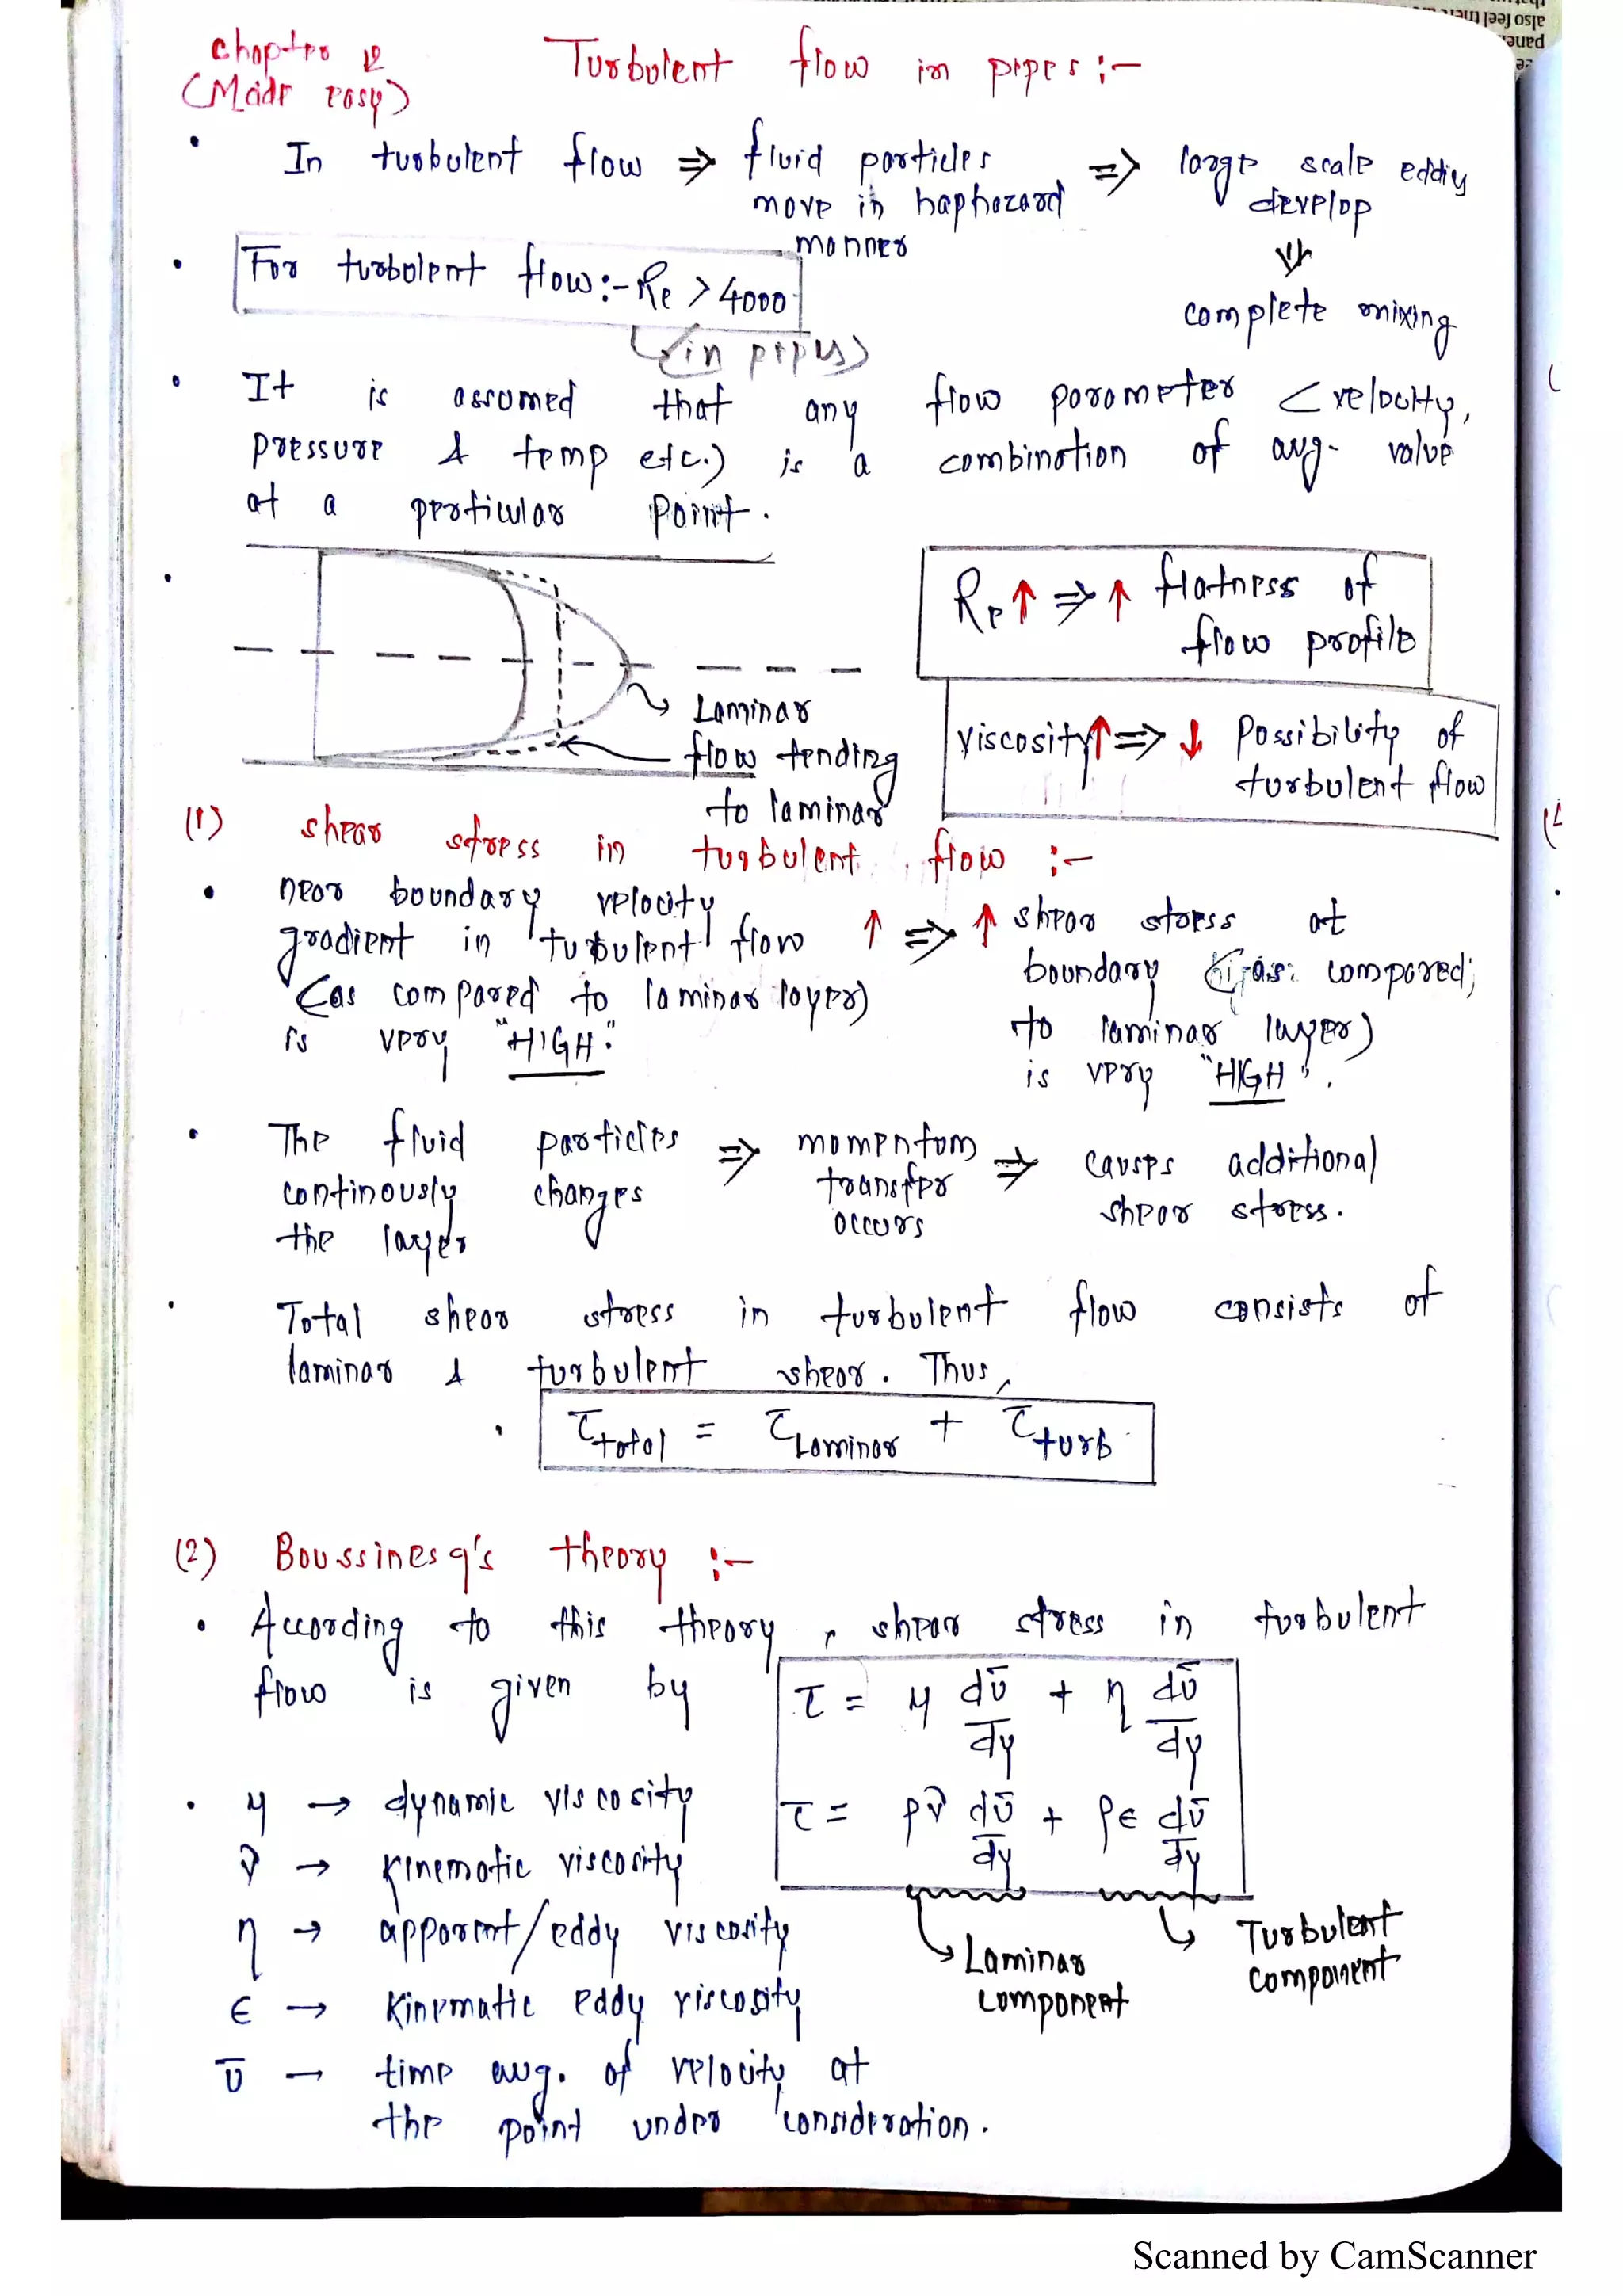 chapter 12
(Made easy)
Turbulent flow in pipes :-
• In turbulent flow ⇒ fluid particles move in haphazard manner ⇒ large scale eddiy develop
⇓
complete mixing
• For turbulent flow :- Re > 4000
(in pipes)
• It is assumed that any flow parameter (velocity,
pressure & temp etc.) is a combination of avg. value
at a perticular point.
Re ↑ ⇒ ↑ flatness of
flow profile
Laminar
flow tending
to laminar
viscosity ↑ ⇒ ↓ Possibility of
turbulent flow
(1) shear stress in turbulent flow :-
• near boundary velocity
gradient in turbulent flow ↑ ⇒ ↑ shear stress at
(as compared to laminar layer)
is very "HIGH".
boundary (as compared
to laminar layer)
is very "HIGH".
• The fluid particles
continously changes
the layers
⇒ momentum
transfer
occurs
⇒ causes additional
shear stress.
• Total shear stress in turbulent flow consists of
laminar & turbulent shear. Thus,
• τtotal = τLaminar + τturb
(2) Boussinesq's theory :-
• According to this theory, shear stress in turbulent
flow is given by τ = μ dū/dy + η dū/dy
τ = ρν dū/dy + ρε dū/dy
Laminar
component
Turbulent
component
• μ → dynamic viscosity
ν → kinematic viscosity
η → apparent/eddy viscosity
ε → Kinematic eddy viscosity
ū → time avg. of velocity at
the point under consideration.
also feel
Scanned by CamScanner